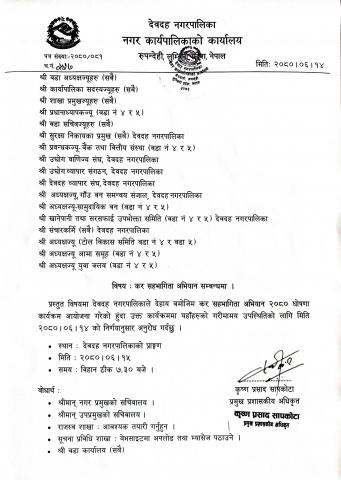 देवदह नगरपालिका
नगर कार्यपालिकाको कार्यालय
रुपन्देही, लुम्बिनी प्रदेश, नेपाल
पत्र संख्या-२०८०/०८१
मिति: २०८०।०६।१४
च.नं.
श्री वडा अध्यक्षज्यूहरु (सबै)
श्री कार्यपालिका सदस्यज्यूहरु (सबै)
श्री शाखा प्रमुखज्यूहरु (सबै)
श्री प्रधानाध्यापकज्यू (वडा नं ४ र ५)
श्री वडा सचिवज्यूहरु (सबै)
श्री सुरक्षा निकायका प्रमुख (सबै) देवदह नगरपालिका
श्री प्रबन्धकज्यू-बैंक तथा वित्तीय संस्था (वडा नं ४ र ५)
श्री उद्योग वाणिज्य संघ, देवदह नगरपालिका
श्री उद्योग व्यापार संगठन, देवदह नगरपालिका
श्री देवदह व्यापार संघ, देवदह नगरपालिका
श्री अध्यक्षज्यू, गाँउ वन समन्वय संजाल, देवदह नगरपालिका
श्री अध्यक्षज्यू-सामुदायिक वन (वडा नं ४ र ५)
श्री खानेपानी तथा सरसफाई उपभोक्ता समिति (वडा नं ४ र ५) देवदह नगरपालिका
श्री संचारकर्मि (सबै) देवदह नगरपालिका
श्री अध्यक्षज्यू (टोल विकास समिति वडा नं ४ र वडा ५)
श्री अध्यक्षज्यू आमा समूह (वडा नं ४ र ५)
श्री अध्यक्षज्यू युवा क्लव (वडा नं ४ र ५)
विषय : कर सहभागिता अभियान सम्बन्धमा ।
प्रस्तुत विषयमा देवदह नगरपालिकाले देहाय बमोजिम कर सहभागिता अभियान २०८० घोषणा
कार्यक्रम आयोजना गरेको हुंदा उक्त कार्यक्रममा यहाँहरुको गरीमामय उपस्थितिको लागि मिति
२०८०।०६।१४ को निर्णयानुसार अनुरोध गर्दछु ।
• स्थान : देवदह नगरपालिकाको प्राङ्गण
• मिति : २०८०।०६।१५
• समय : विहान ठीक ७.३० बजे ।
कृष्ण प्रसाद सापकोटा
प्रमुख प्रशासकीय अधिकृत
कृष्ण प्रसाद सापकोटा
प्रमुख प्रशासकीय अधिकृत
बोधार्थ :
• श्रीमान् नगर प्रमुखको सचिवालय ।
• श्रीमान् उपप्रमुखको सचिवालय ।
• राजस्व शाखा : आवश्यक तयारी गर्नुहुन ।
• सूचना प्रविधि शाखा : वेभसाइटमा अपलोड तथा म्यासेज पठाउने ।
• श्री वडा कार्यालय (सबै)